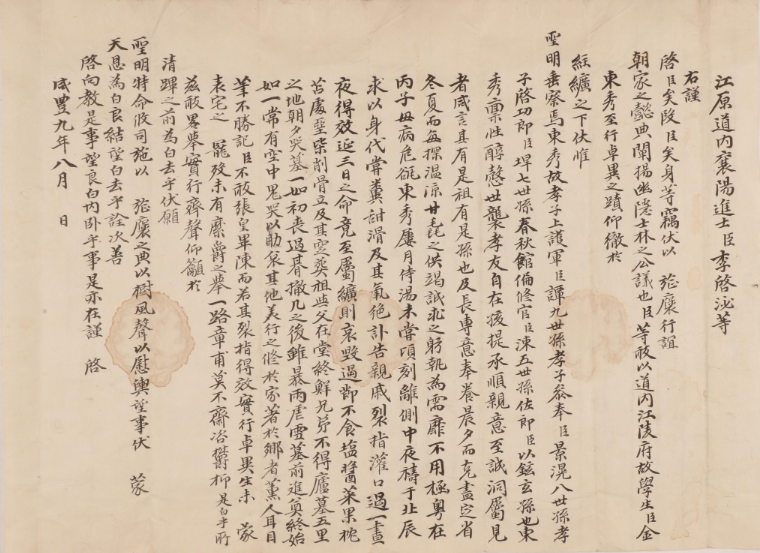 江原道內襄陽進士臣李啓泌等
右謹
啓臣矣段臣矣身等竊伏以 旌褒行誼
朝家之懿典闡揚幽隱士林之公議也臣等敢以道內江陵府故學生臣金
東秀至行卓異之蹟仰徹於
紸纊之下伏惟
聖明垂察焉東秀故孝子上護軍臣譚九世孫孝子參奉臣景滉八世孫孝
子啓功郎臣垾七世孫春秋館編修官臣涑五世孫佐郎臣以鉉玄孫也東
秀稟性醇慤世襲孝友自在孩提承順親意至誠洞屬見
者咸言其有是祖有是孫也及長專意奉養晨夕而克盡定省
冬夏而每探溫凉甘毳之供竭誠求之躬執爲需靡不用極粤在
丙子母病危欲東秀屢月侍湯未嘗頃刻離側中夜禱于北辰
求以身代嘗糞甜滑及其氣絶訃告親戚裂指灌口過一晝
夜得效延三日之命竟至屬纊則哀毁過節不食塩醬菜果枕
苫處堊柴削骨立及其窆葬祖與父在堂終鮮兄弟不得廬墓五里
之地朝夕哭墓一如初喪過朞撤几之後雖暴雨虐雪墓前進奠終始
如一常有空中鬼哭以助哀其他美行之修於家著於鄉者薰人耳目
筆不勝記臣不敢張皇畢陳而若其裂指得效實行卓異生未 蒙
表宅之 䮫歿未有縻爵之擧一路章甫莫不齎咨欝抑是白乎所
玆敢畧擧實行齊聲仰籲於
淸蹕之前爲白去乎伏願
聖明特命攸司施以 旌褒之典以樹風聲以慰輿望事伏 蒙
天恩爲白良結望白去乎詮次善
啓向敎是事望良白內臥乎事是亦在謹 啓
咸豊九年八月 日